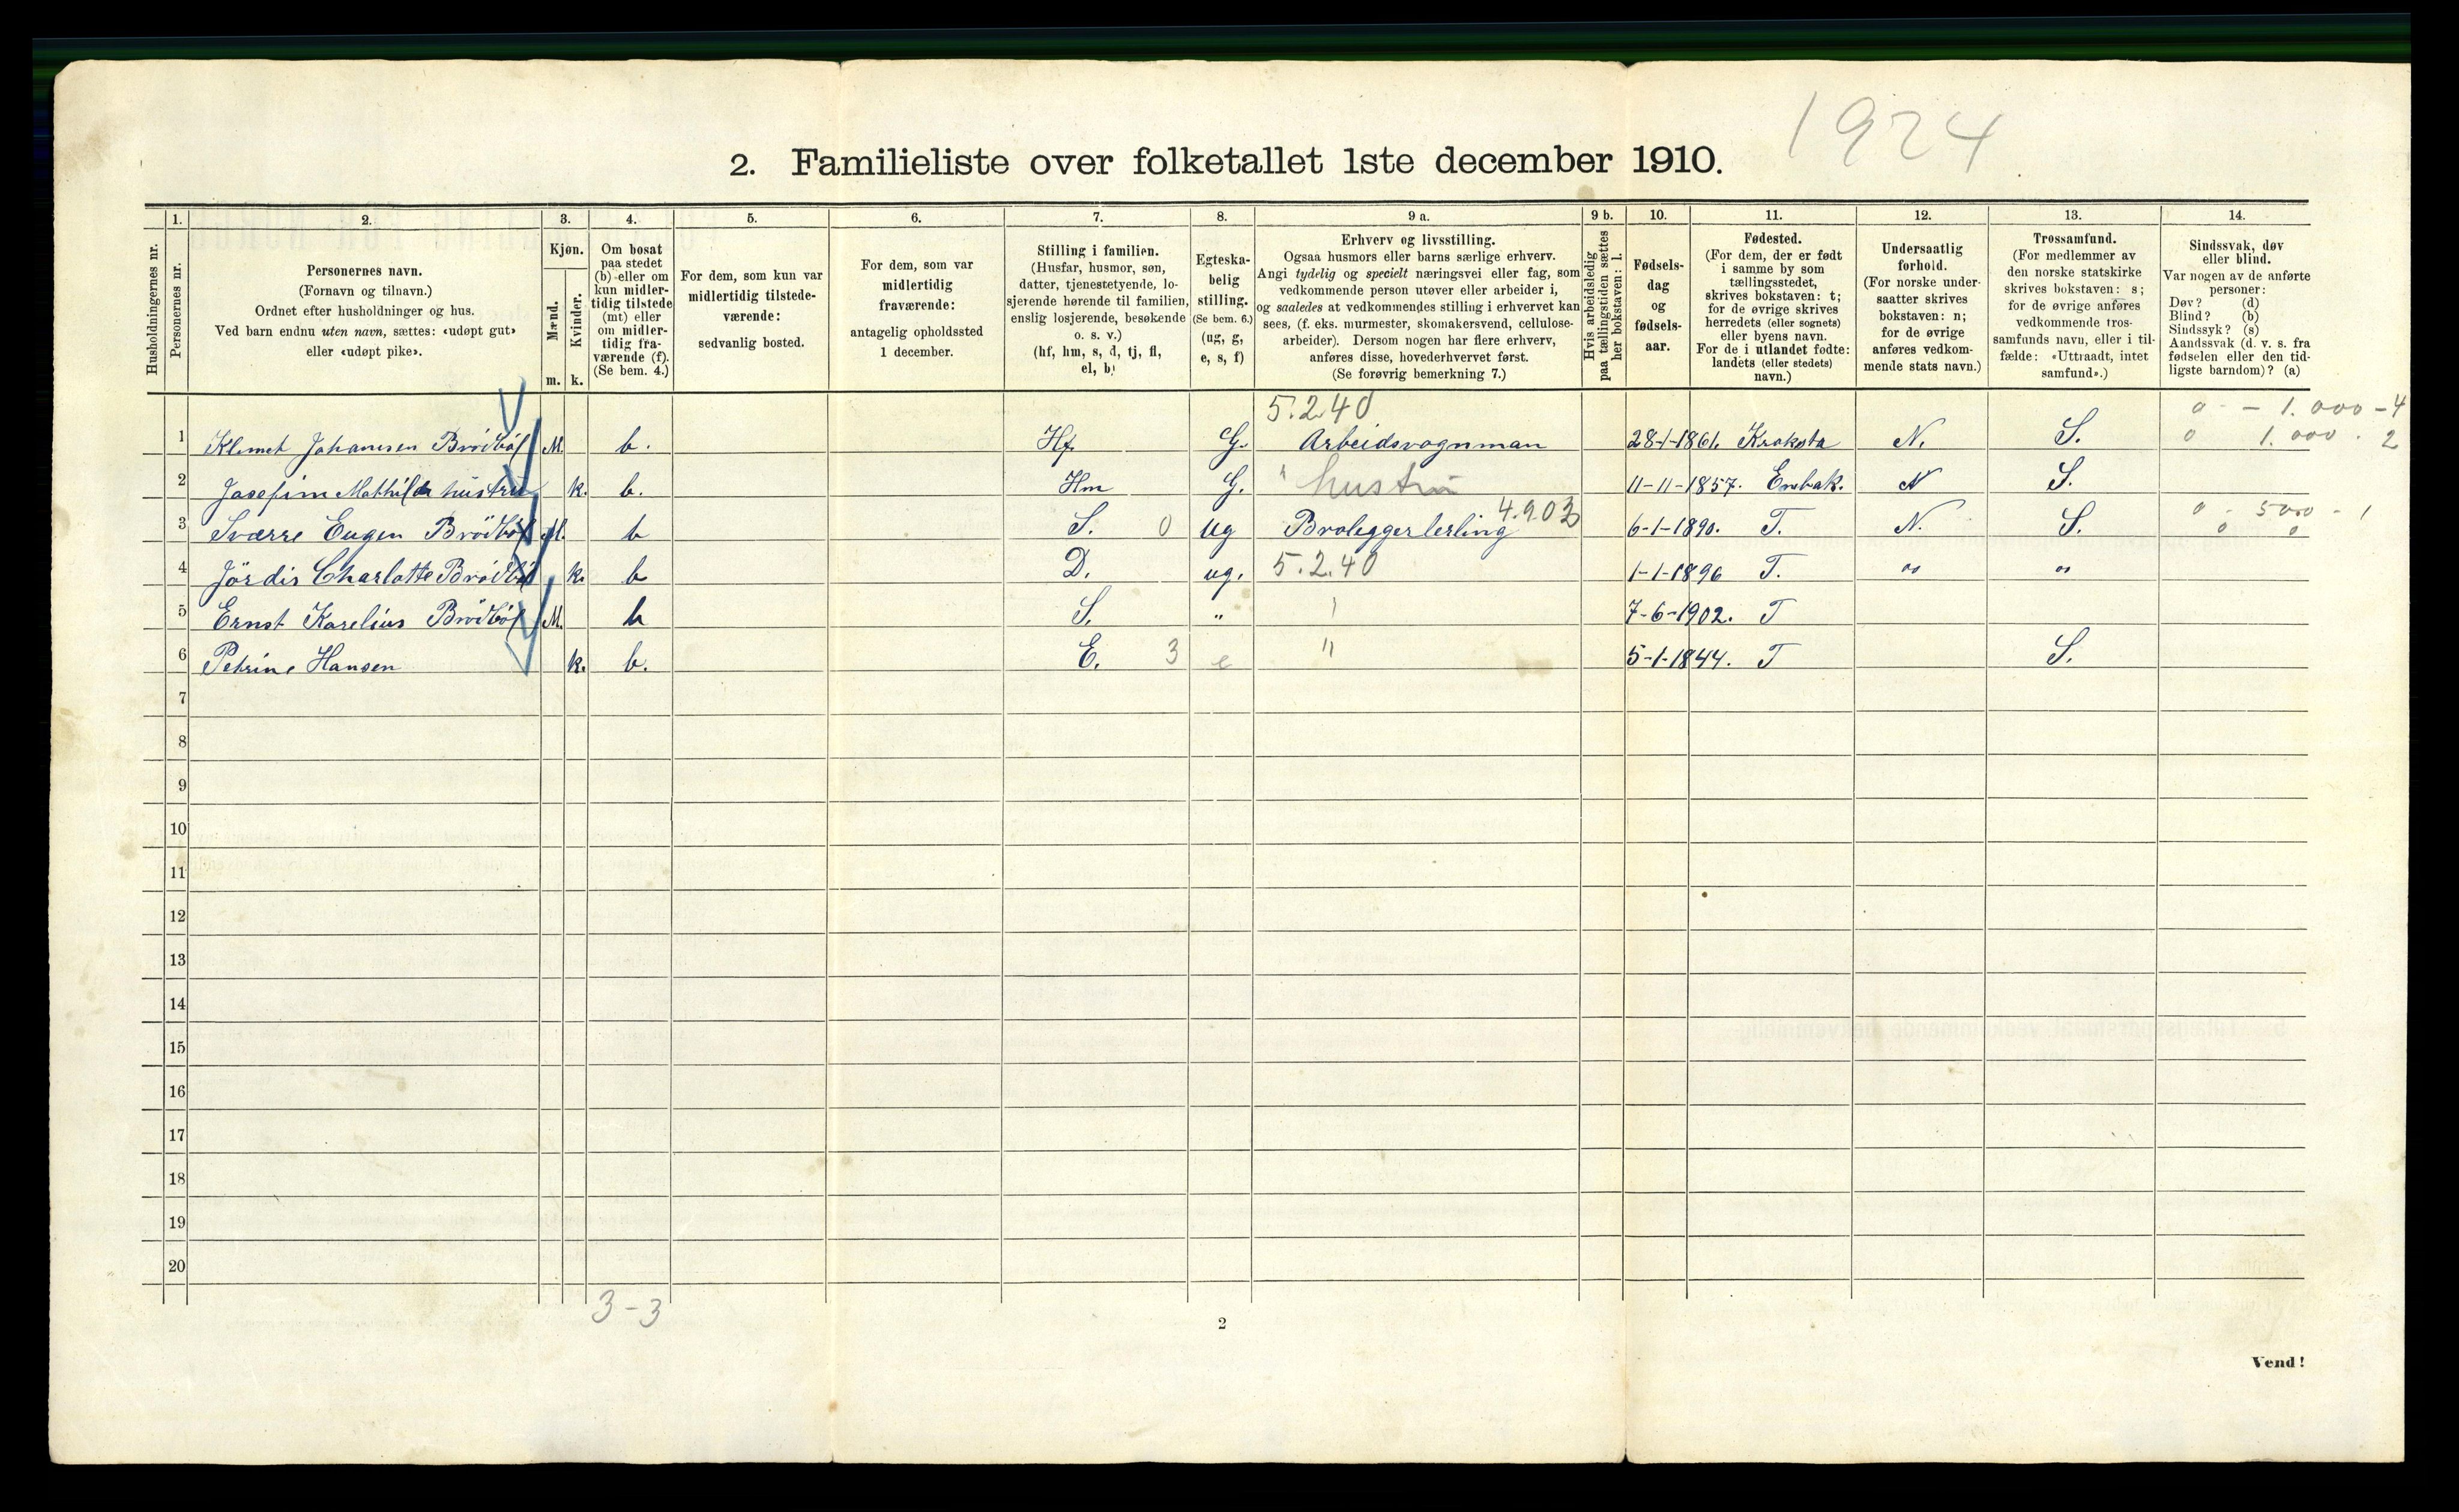 1924
2. Familieliste over folketallet 1ste december 1910.
Husholdningernes nr.
1. Personernes nr.
2. Personernes navn.
(Fornavn og tilnavn.)
Ordnet efter husholdninger og hus.
Ved barn endnu uten navn, sættes: «udøpt gut»
eller «udøpt pike».
3. Kjøn.
Mænd. m.
Kvinder. k.
4. Om bosat
paa stedet
(b) eller om
kun midler-
tidig tilstede
(mt) eller
om midler-
tidig fra-
værende (f).
(Se bem. 4.)
5. For dem, som kun var
midlertidig tilstede-
værende:
sedvanlig bosted.
6. For dem, som var
midlertidig
fraværende:
antagelig opholdssted
1 december.
7. Stilling i familien.
(Husfar, husmor, søn,
datter, tjenestetyende, lo-
sjerende hørende til familien,
enslig losjerende, besøkende
o. s. v.)
(hf, hm, s, d, tj, fl,
el, b)
8. Egteska-
belig
stilling.
(Se bem. 6.)
(ug, g,
e, s, f)
9 a. Erhverv og livsstilling.
Ogsaa husmors eller barns særlige erhverv.
Angi tydelig og specielt næringsvei eller fag, som
vedkommende person utøver eller arbeider i,
og saaledes at vedkommendes stilling i erhvervet kan
sees, (f. eks. murmester, skomakersvend, cellulose-
arbeider). Dersom nogen har flere erhverv,
anføres disse, hovederhvervet først.
(Se forøvrig bemerkning 7.)
9 b. Hvis arbeidsledig
paa tællingstiden sættes
her bokstaven: l.
10. Fødsels-
dag
og
fødsels-
aar.
11. Fødested.
(For dem, der er født
i samme by som
tællingsstedet,
skrives bokstaven: t;
for de øvrige skrives
herredets (eller sognets)
eller byens navn.
For de i utlandet fødte:
landets (eller stedets)
navn.)
12. Undersaatlig
forhold.
(For norske under-
saatter skrives
bokstaven: n;
for de øvrige
anføres vedkom-
mende stats navn.)
13. Trossamfund.
(For medlemmer av
den norske statskirke
skrives bokstaven: s;
for de øvrige anføres
vedkommende tros-
samfunds navn, eller i til-
fælde: «Uttraadt, intet
samfund».)
14. Sindssvak, døv
eller blind.
Var nogen av de anførte
personer:
Døv? (d)
Blind? (b)
Sindssyk? (s)
Aandssvak (d. v. s. fra
fødselen eller den tid-
ligste barndom)? (a)
5.2.40 0 - - 1.000 - 4
1 Klemet Johannesen Brödböl M. b. Hf. G. Arbeidsvognman 28-1-1861. Kroksta N. S. 0 1.000 . 2
2 Josefine Mathilde hustru k. b. Hm G. " hustru 11-11-1857. Enebak. N S.
4.903 0 - 500 - 1
3 Sværre Eugen Brödböl M. b S. 0 ug Broleggerlerling 6-1-1890. T. N. S. 0 0
4 Jördis Charlotte Brödböl k. b D. ug. 5.2.40 1-1-1896 T. " "
5 Ernst Karelius Brödböl M. b S. " 7-6-1902. T
6 Petrine Hansen k. b. E. 3 e " 5-1-1844. T S.
7
8
9
10
11
12
13
14
15
16
17
18
19
20
3-3
2
Vend!